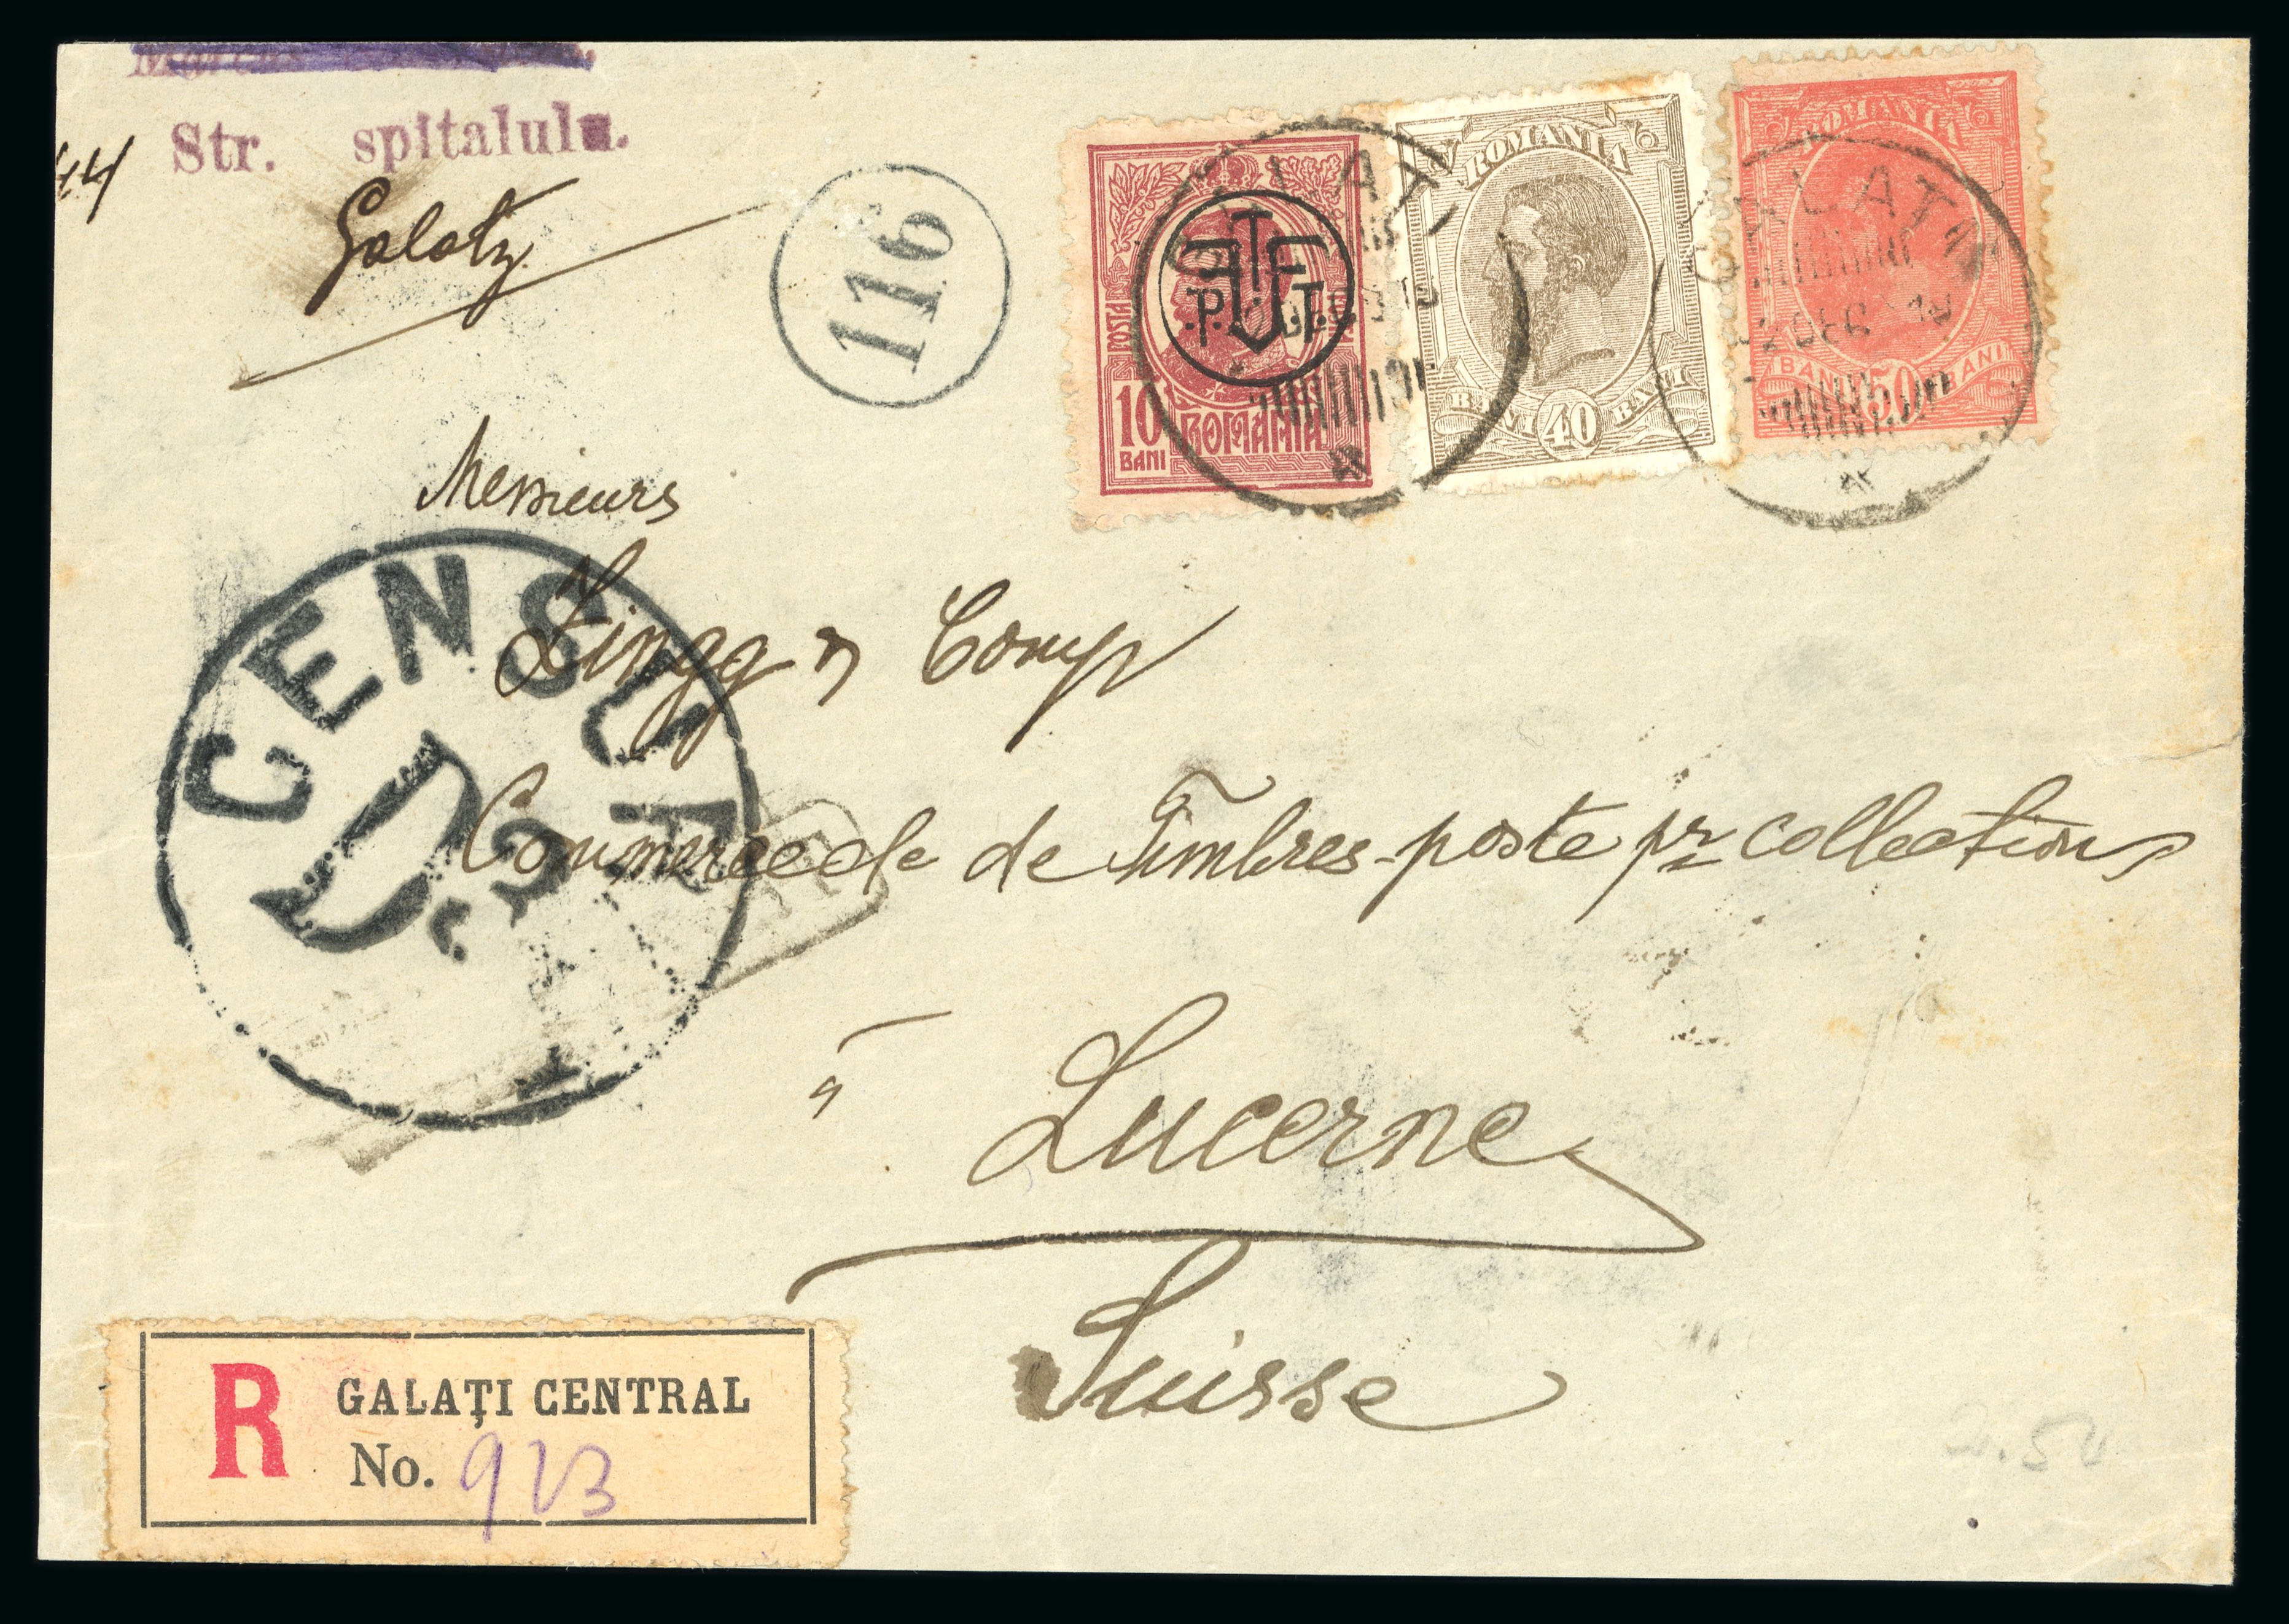 Str. spitalulu.
44
Galatz
116
POSTA
10
BANI
ROMANIA
P. T.
GALATI
ROMANIA
40
BANI
ROMANIA
BANI 50 BANI
GALATI
DEC
Messieurs
Zingg & Comp
Commerce de de Timbres-poste pr collections
à Lucerne
Suisse
CENSURA
D.
R
GALAȚI CENTRAL
No. 923
2.50